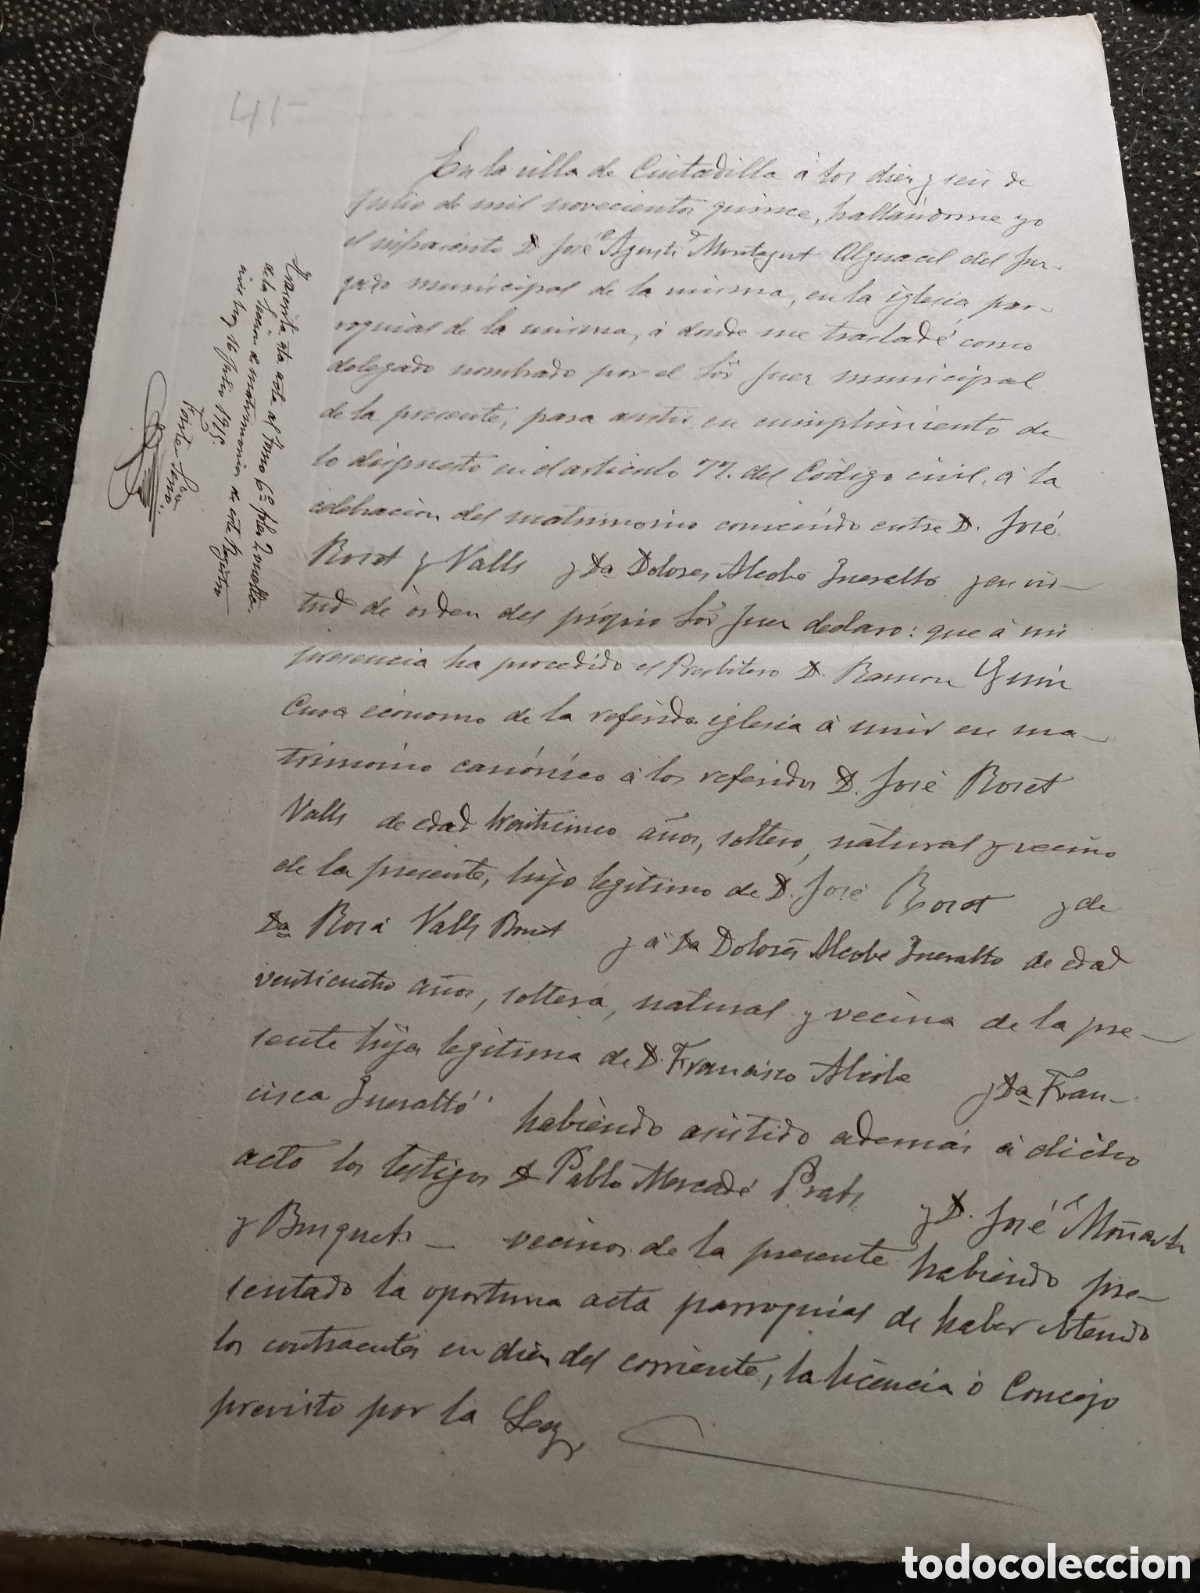 41-
En la villa de Ciutadilla á los diez y seis de
Julio de mil novecientos quince, hallándome yo
el infrascrito D. José Agustí Montagut Alguacil del Juz-
gado municipal de la misma, en la iglesia par-
roquial de la misma, á donde me trasladé como
delegado nombrado por el Sor Juez municipal
de la presente, para asistir en cumplimiento de
lo dispuesto en el articulo 77. del Código civil, á la
celebracion del matrimonio convenido entre D. José
Boret y Valls y Da Dolores Alcobé Gueralto y en vir-
tud de órden del própio Sor Juez declaro: que á mi
presencia ha procedido el Presbitero D. Ramon
Cura ecónomo de la referida iglesia á unir en ma-
trimonio canónico á los referidos D. José Boret
Valls de edad treinticinco años, soltero, natural y vecino
de la presente, hijo legitimo de D. José Boret y de
Da Rosa Valls Bonet y á Da Dolores Alcobé Gueralto de edad
venticuatro años, soltera, natural y vecina de la pre-
sente hija legitima de D. Francisco Alcobe y Da Fran-
cisca Gueraltó habiendo asistido además á dicho
acto los testigos D Pablo Mercadé Prats y D. José
y Busquets - vecinos de la presente habiendo pre-
sentado la oportuna acta parroquial de haber obtenido
los contraentes en diez del corriente, la licencia ó Concejo
previsto por la Ley
Transcrita esta acta al tomo 6º folio 2 vuelto
de la Seccion de matrimonios de este Registro
hoy 16 Julio 1915.